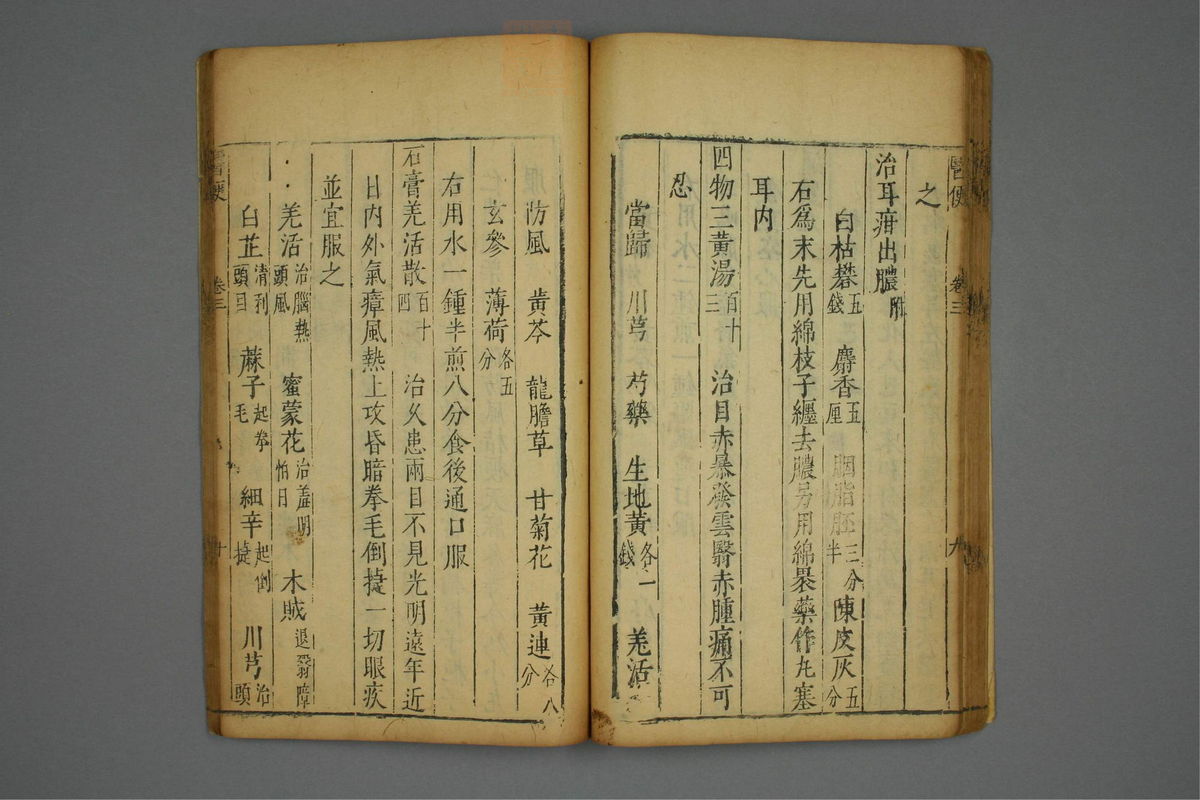 醫便 卷三 九
之
治耳疳出膿 附
白枯礬 五錢 麝香 五厘 胭脂胚 三分半 陳皮灰 五分
右爲末先用綿枝子纏去膿另用綿裹藥作丸塞
耳內
四物三黃湯 百十三 治目赤暴發雲翳赤腫痛不可
忍
當歸 川芎 芍藥 生地黃 各一錢 羗活
防風 黃芩 龍膽草 甘菊花 黃連 各八分
玄參 薄荷 各五分
右用水一鍾半煎八分食後通口服
石膏羗活散 百十四 治久患兩目不見光明遠年近
日內外氣瘴風熱上攻昏暗拳毛倒捷一切眼疾
並宜服之
羗活 治腦熱頭風 蜜蒙花 治羞明怕日 木賊 退翳障
白芷 清利頭目 蔴子 起拳毛 細辛 起倒捷 川芎 治頭
醫便 卷三 十